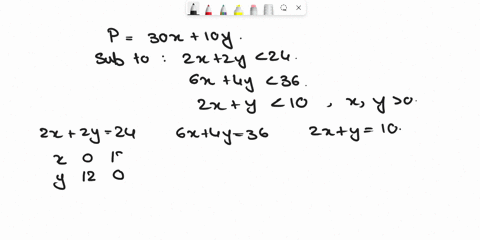 P = 30x + 10y.
Sub to : 2x+2y <24.
6x+4y <36.
2x+y <10 , x, y >0.
2x+2y=24 6x+4y=36 2x+y=10.
x 0
y 12 0